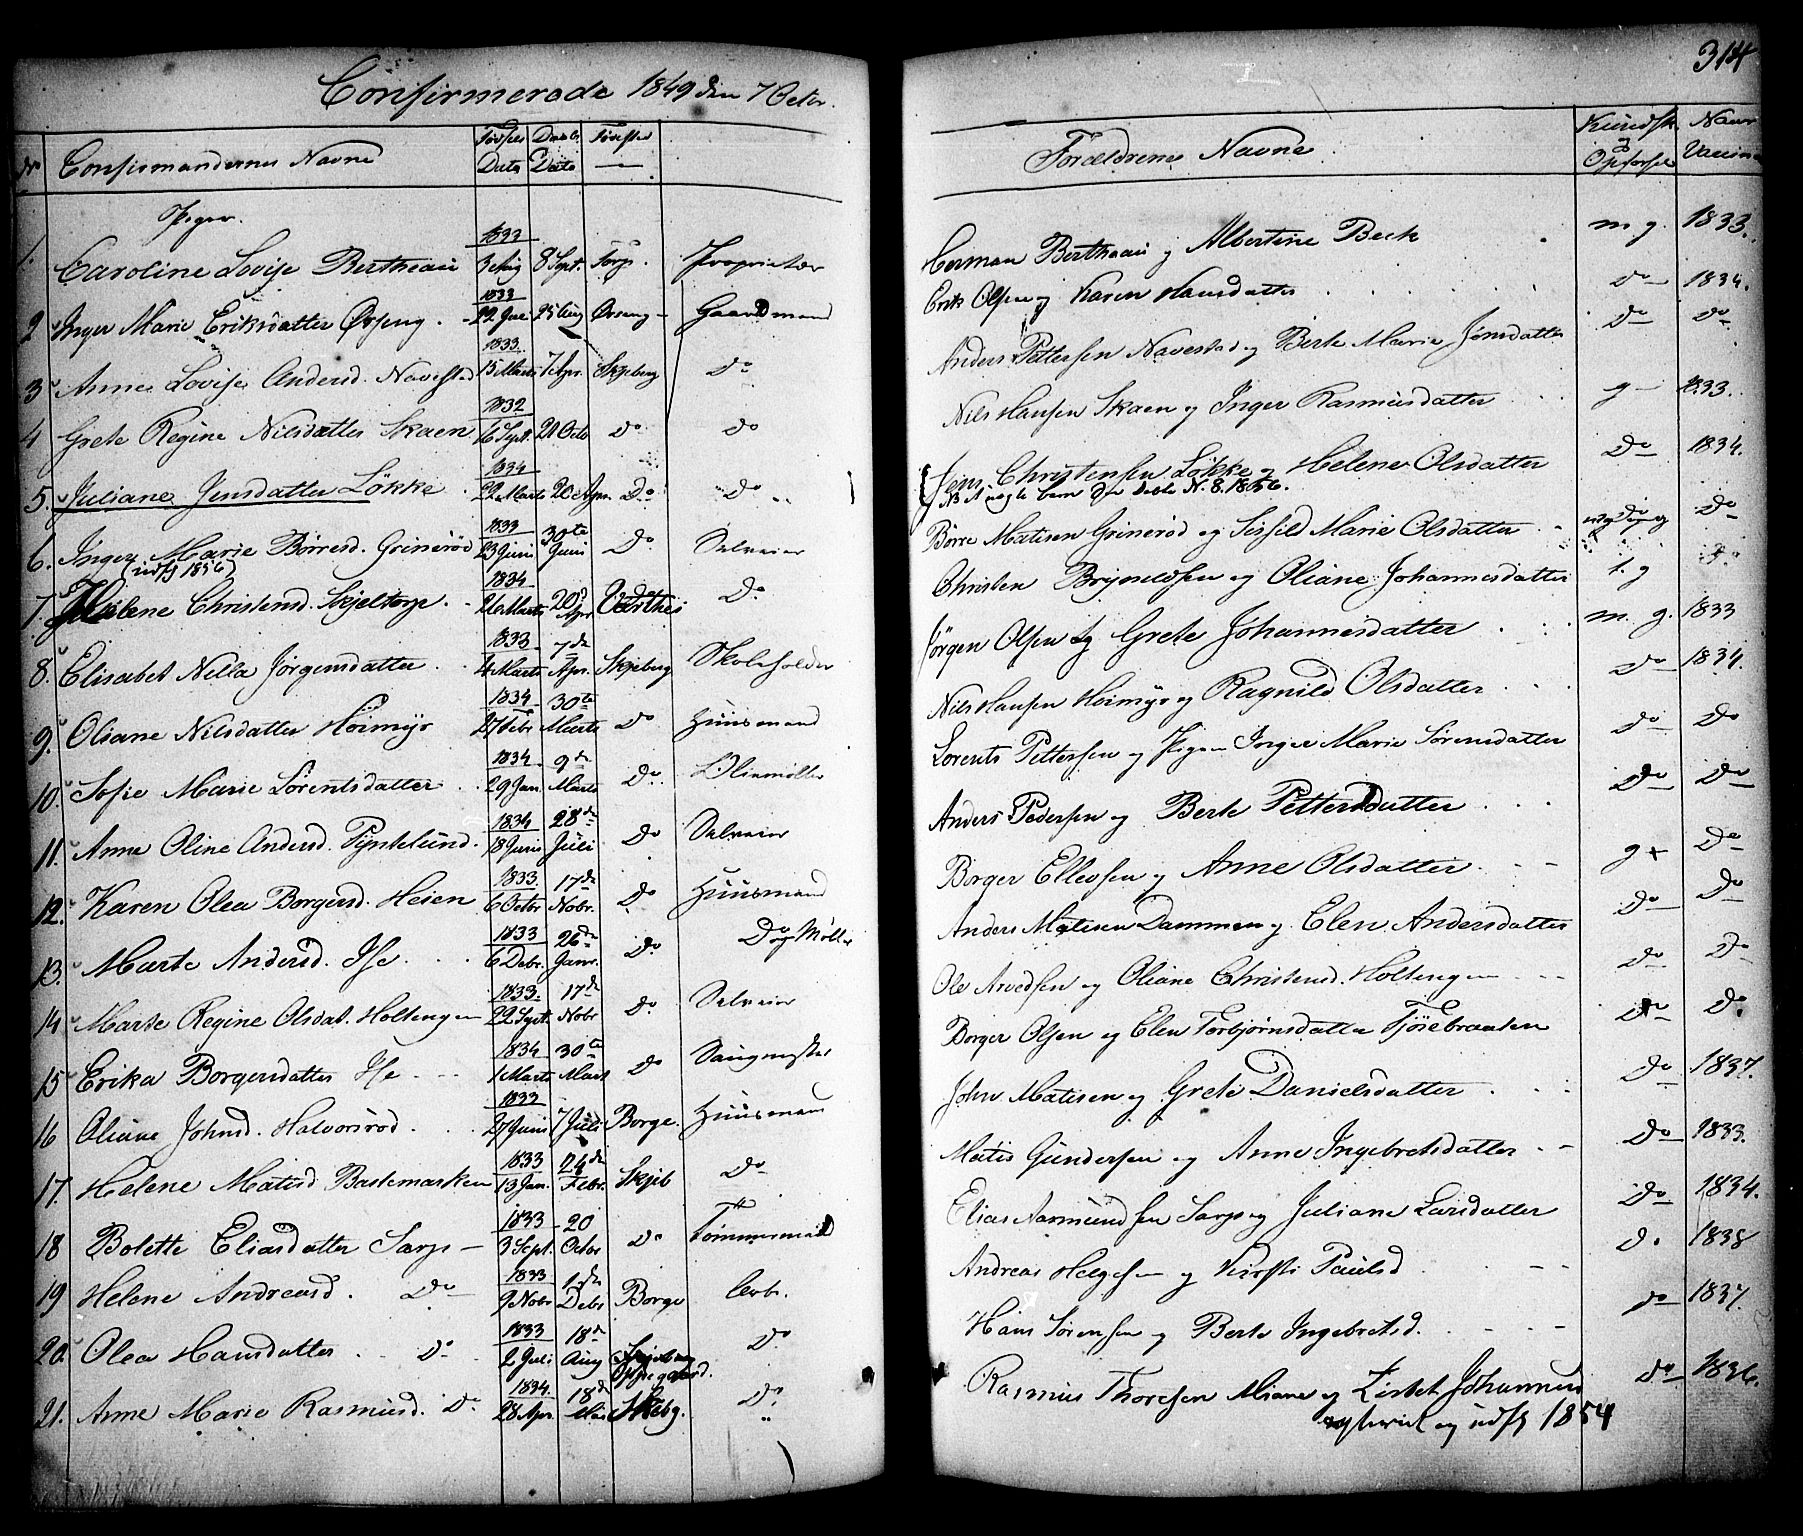 Confirmerede 1849 den 7 Octbr.
314
Nr Confirmandernes Navne Fødsels Dato Daabs Dato Fødested
Forældrene Navne Kundsk. og Opførsel Naar Vaccin
Piger.
1. Caroline Lovise Bertheau 1833 3 Aug 8 Sept. Torp. Proprietær
Herman Bertheau og Albertine Beck m. g. 1833.
2 Inger Marie Eriksdatter Ørseng 1833 29 Juli 25 Aug Ørseng Gaardmand
Erik Olsen og Karen Hansdatter Do 1834.
3 Anne Lovise Andersd. Navestad 1833. 15 Marts 7 Apr. Skjeberg Do
Anders Pettersen Navestad og Berte Marie Jensdatter Do Do
4 Grete Regine Nilsdatter Skaen 1832 16 Sept. 21 Octb Do Do
Nils Hansen Skaen og Inger Rasmusdatter g 1833.
5. Juliane Jensdatter Løkke 1834 22 Marts 20 Apr. Do Do
Jens Christensen Løkke og Helene Olsdatter Do 1834.
6. Inger Marie Børresd. Grinerød 1833 23 Juni 30te Juni Do Selveier
(udfl 1856)
Børre Matisen Grinerød og Sisfild Marie Olsdatter Do
7. Helene Christensd. Skjeltorp 1834 26 Marts 20de Apr. Do
Christen Brynildsen og Oliane Johannesdatter t. g Do
8. Elisabet Nilla Jørgensdatter 1833 4 Marts 7de Apr. Skjeberg Skoleholder
Jørgen Olsen og Grete Johannesdatter m. g. 1833
9. Oliane Nilsdatter Høimyr 1834 27 Febr 30te Marts Do Huusmand
Nils Hansen Høimyr og Ragnild Olsdatter Do 1834.
10. Sofie Marie Lorentsdatter 1834 29 Jan. 9de Marts Do Oliemøller
Lorents Pettersen og Pigen Inger Marie Sørensdatter Do Do
11. Anne Oline Andersd. Pyntelund 1834 18 Juni 28de Juli Do Selveier
Anders Pedersen og Berte Pettersdatter Do Do
12. Karen Olea Borgersd. Heien 1833. 6 Octbr 17de Nobr. Do Huusmand
Borger Ellevsen og Anne Olsdatter g + Do
13. Marte Andersd. Ise 1833 6 Debr. 26de Janr. Do Do og Møller
Anders Matisen Dammen og Elen Andersdatter Do Do
14 Marte Regine Olsdat. Holtengen 1833. 22 Sept. 17de Nobr Do Selveier
Ole Arvedsen og Oliane Christensd. Holtengen Do Do
15 Erika Borgersdatter Ise 1834 1 Marts 30te Mart Do Saugmester
Borger Olsen og Elen Torbjørnsdatter Tjøsebraaten Do Do
16 Oliane Johnsd. Halvorsrød 1833 27 Juni 7 Juli Borge. Huusmand
John Matisen og Grete Danielsdatter Do 1837.
17. Helene Matisd Bastemarken 1833 13 Jan. 24de Febr. Skjeb Do
Matis Gundersen og Anne Ingebretsdatter Do 1833.
18 Bolette Eliasdatter Sarps 1833 3 Sept. 20 Octbr Do Tømmermand
Elias Aasmundsen Sarps og Juliane Larsdatter Do 1834.
19 Helene Andreasd. Do 1833 9 Nobr 1de Debr Borge Arb.
Andreas Helgesen og Kirsti Paulsd Do 1838
20. Olea Hansdatter Do 1833 2 Juli 18de Aug Do
Hans Sørensen og Berte Ingebretsd. Do 1837.
21. Anne Marie Rasmusd. Do 1834. 28 Apr. 18de Mai Skebg. Do
Rasmus Thoresen og Lisbet Johannesd Do 1836.
og udfl 1854